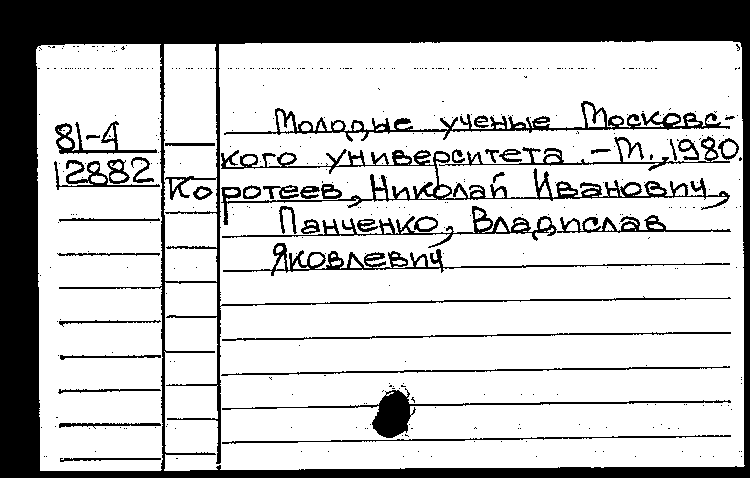 81-4
12882
Молодые ученые Московс-
кого университета. - М., 1980.
Коротеев, Николай Иванович,
Панченко, Владислав
Яковлевич